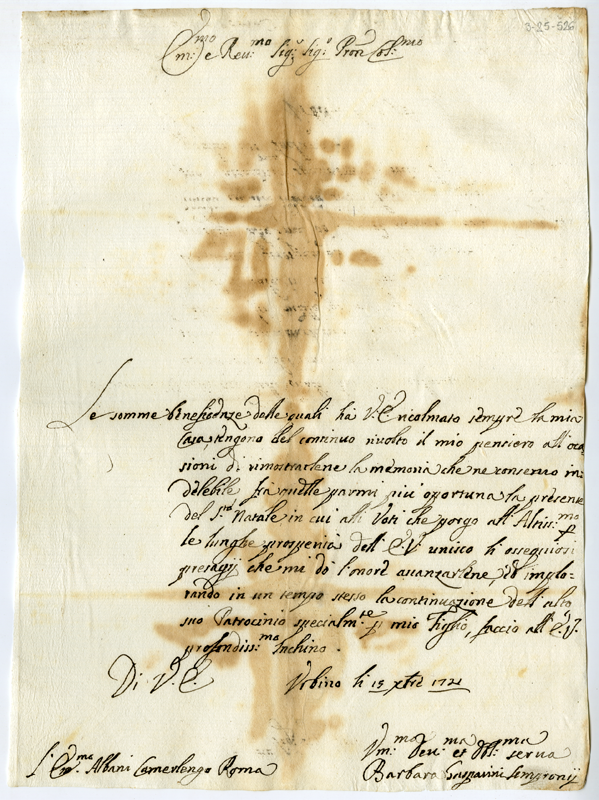 3-25-526
Em:mo e Reu:mo Sig:r Sig:r Pron Col:mo
Le somme beneficenze delle quali hà V.E. ricolmato sempre la mia
Casa, tengono del continuo riuolto il mio pensiero all'occa
sioni di rimostrarlene la memoria che ne conseruo in=
delebile. frà quelle parmi più opportuna la presente
del S.to Natale in cui alli Voti che porgo all'Altiss:mo p
le lunghe prosperità dell'E.V. unisco li ossequiosi
presagij che mi dò l'onore auanzarlene, ed implo-
rando in un tempo stesso la continuazione dell'alto
suo Patrocinio specialm:te p mio Figlio, faccio all'E.V.
profondiss:mo Inchino.
Di V.E. Vrbino li 15 xbre 1721
S.r Em:mo Albani Camerlengo Roma
Vm:ma Deu:ma et Obl:ma serua
Barbara Gasparini Sempronij